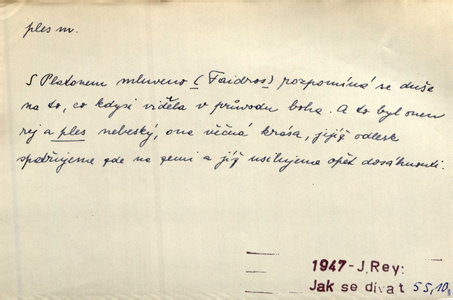 ples m.
S Platonem mluveno (Faidros) rozpomíná se duše
na to, co kdysi viděla v průvodu boha. A to byl onen
rej a ples nebeský, ona věčná krása, jejíž odlesk
spatřujeme zde na zemi a jíž usilujeme opět dosáhnouti.
1947 - J. Rey:
Jak se dívat 55,10,